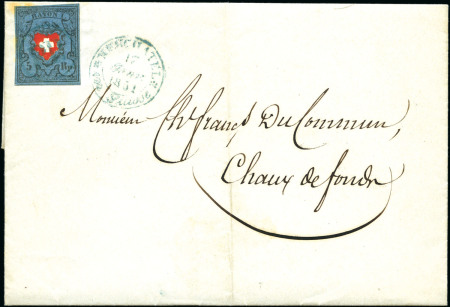 RAYON I
5 Rp.
NEUCHATEL
1851
Monsieur Ch.s Franç.s DuCommun,
Chaux de fonds